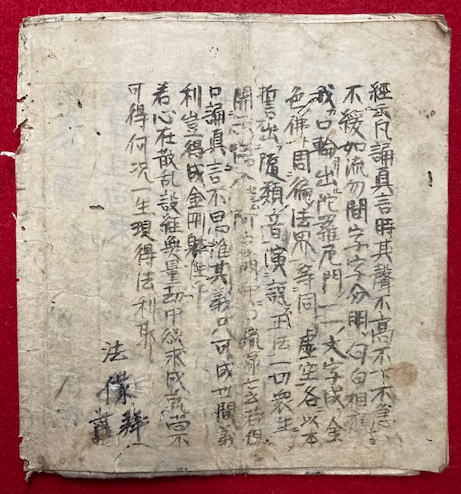 經云凡誦真言時其聲不高不下不急
不緩如流勿間字字分明句句相應
我口輪出陀羅尼門一一文字成金
色佛周徧法界等同虛空各以本
誓出隨類音演說正法一切衆生
開示悟入
口誦真言不思惟其義只可成世間義
利豈得成金剛
若心在散乱設經無量劫中欲求成就尚
可得何況一生現得法利
法
拜